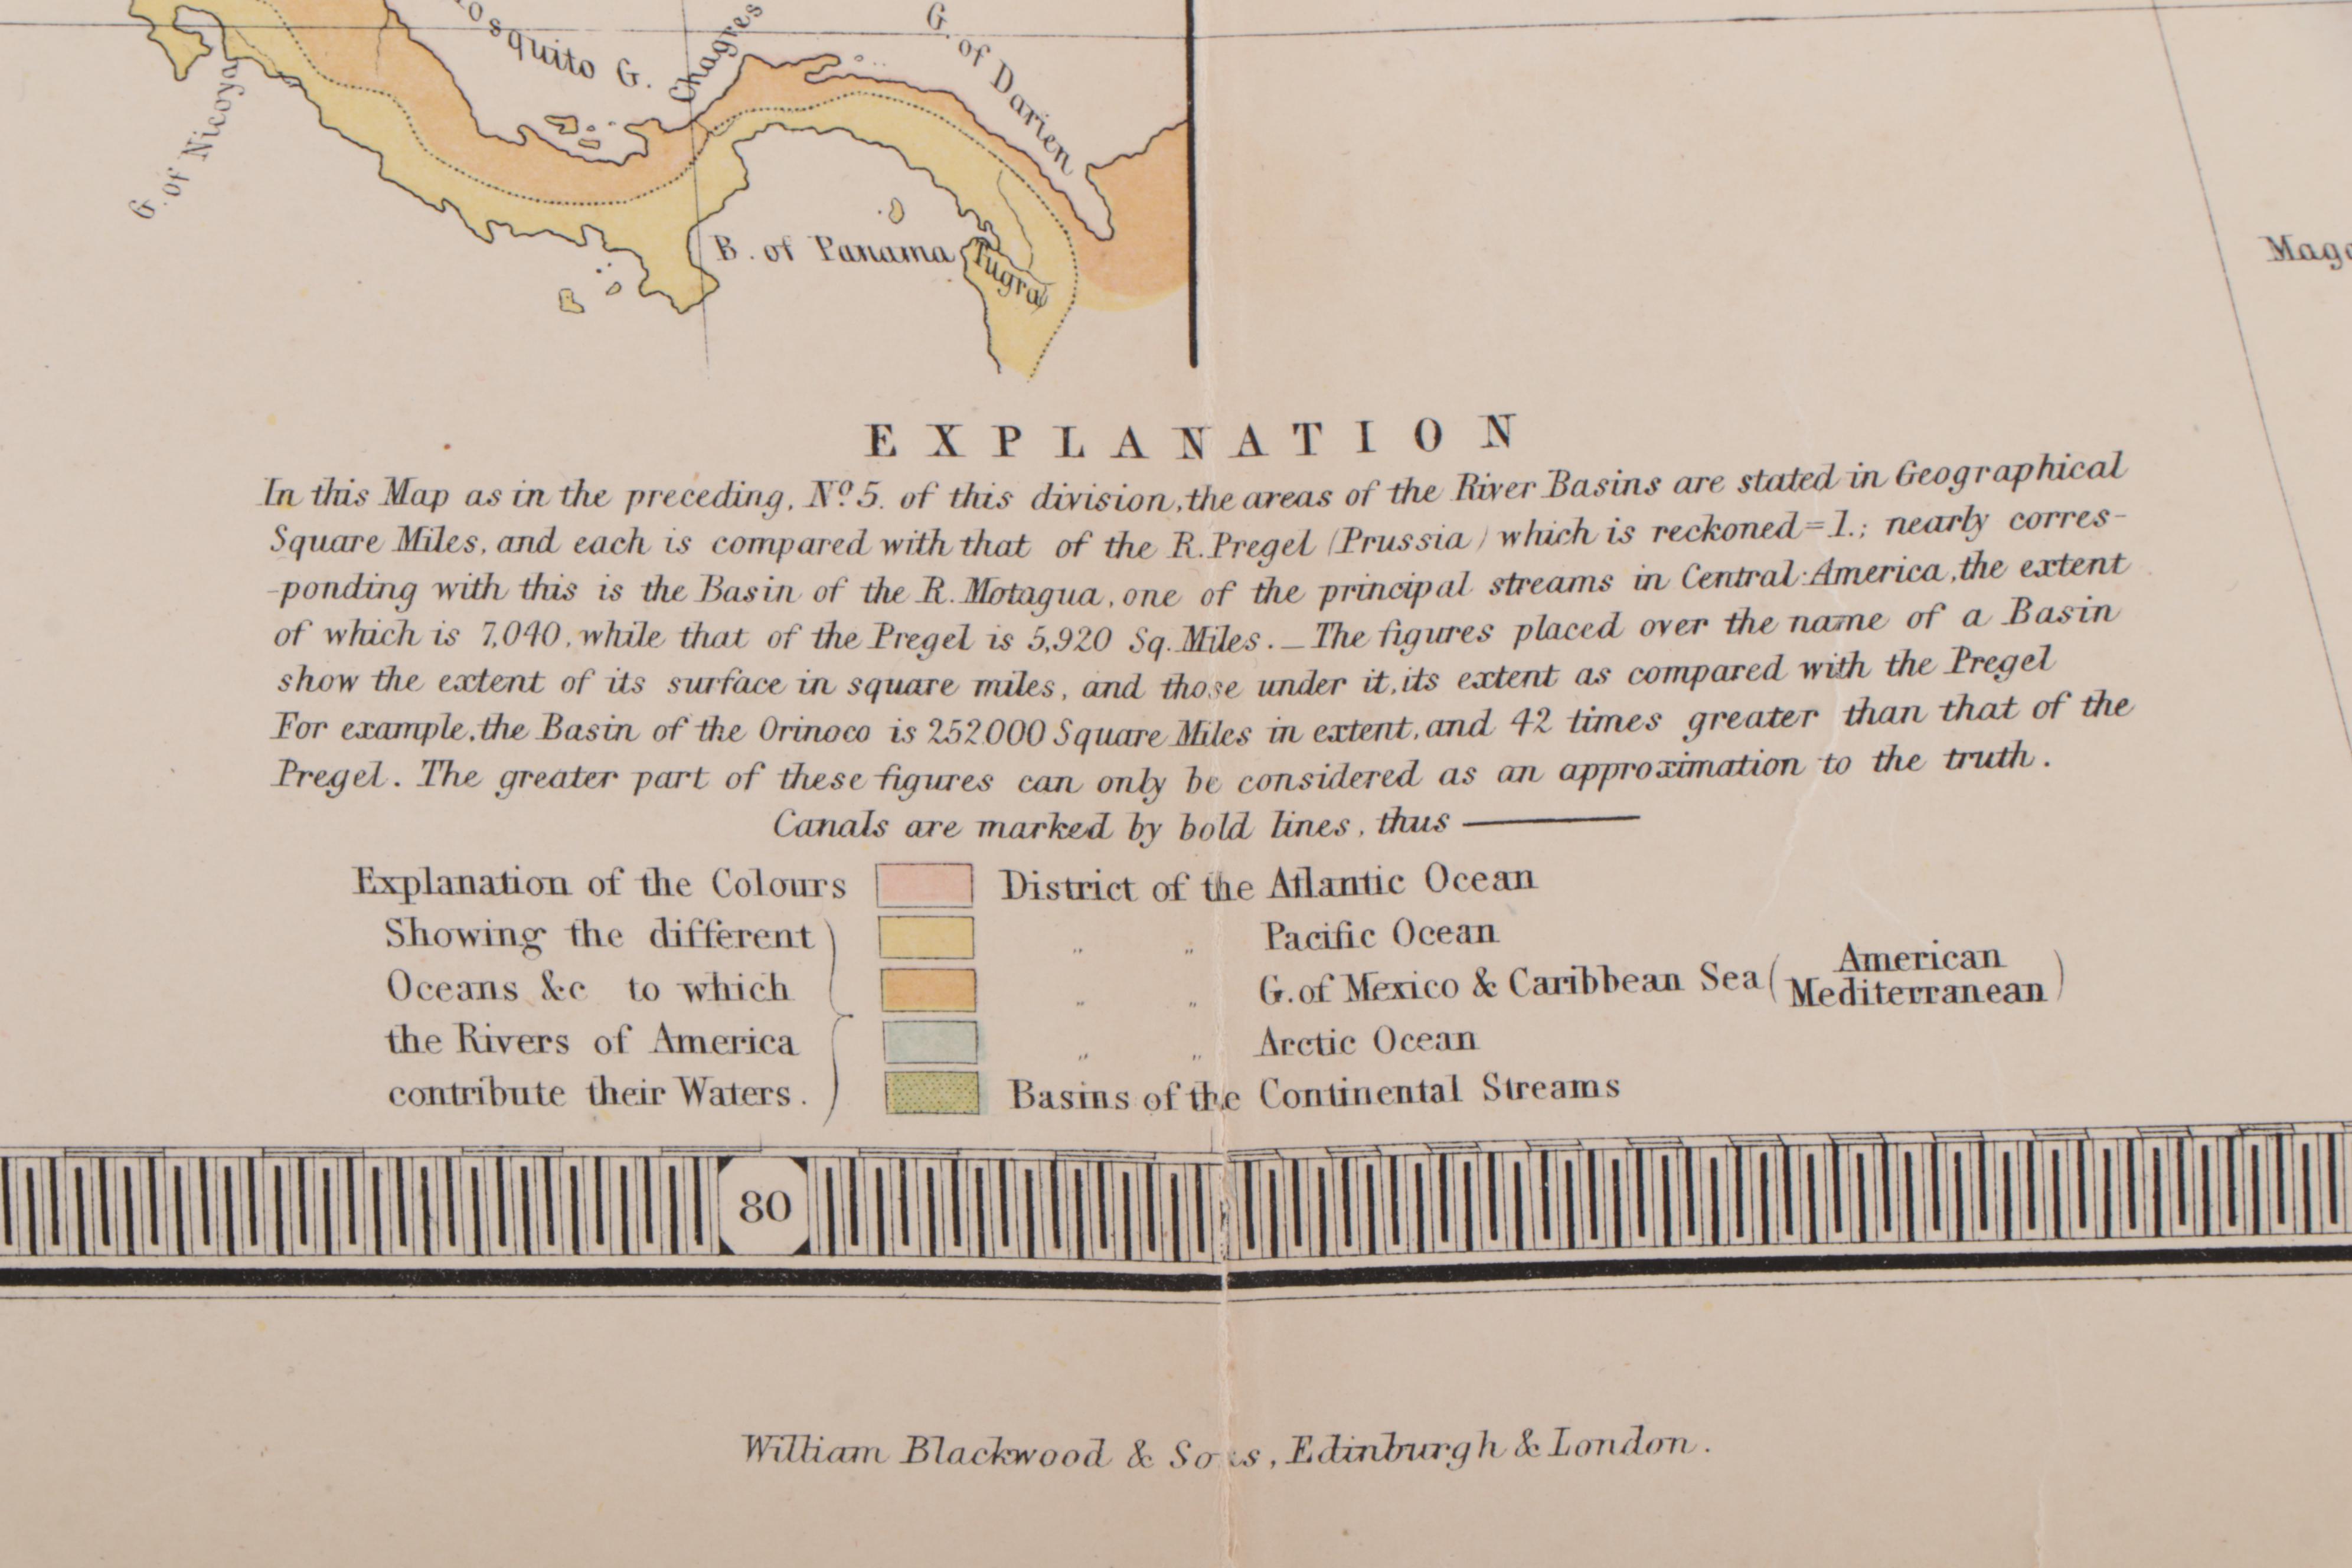 Mosquito G.
Chagres
G. of Darien
G. of Nicoya
B. of Panama
Tugra
EXPLANATION
In this Map as in the preceding, No. 5. of this division, the areas of the River Basins are stated in Geographical
Square Miles, and each is compared with that of the R. Pregel (Prussia) which is reckoned = 1.; nearly corres-
-ponding with this is the Basin of the R. Motagua, one of the principal streams in Central-America, the extent
of which is 7,040, while that of the Pregel is 5,920 Sq. Miles. — The figures placed over the name of a Basin
show the extent of its surface in square miles, and those under it, its extent as compared with the Pregel
For example, the Basin of the Orinoco is 252.000 Square Miles in extent, and 42 times greater than that of the
Pregel. The greater part of these figures can only be considered as an approximation to the truth.
Canals are marked by bold lines, thus
Explanation of the Colours District of the Atlantic Ocean
Showing the different " " Pacific Ocean
Oceans &c to which " " G. of Mexico & Caribbean Sea (American Mediterranean)
the Rivers of America " " Arctic Ocean
contribute their Waters. Basins of the Continental Streams
80
William Blackwood & Sons, Edinburgh & London.